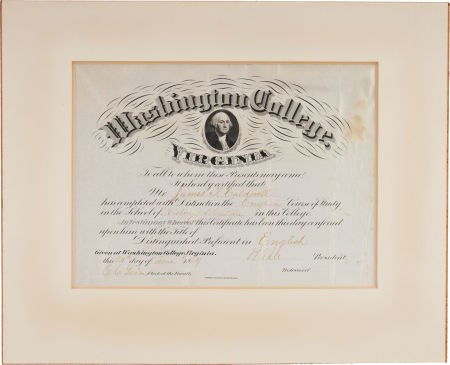 Washington College,
VIRGINIA.
To all to whom these Presents may come
It is hereby certified that
Mr. James
has completed with Distinction the English Course of Study
in the School of in this College.
In Testimony Whereof this Certificate has been this day conferred
upon him with the Title of
Distinguished Proficient in English
Given at Washington College, Virginia. President
this day of
Clerk of the Faculty Professor